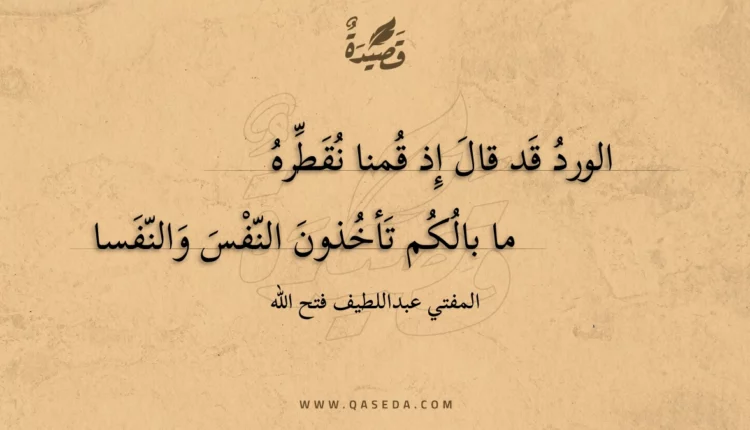 قَصِيْدَةٌ
الوردُ قَد قالَ إِذ قُمنا نُقَطِّرهُ
ما بالُكُم تَأخُذونَ النّفْسَ وَالنّفَسا
المفتي عبداللطيف فتح الله
WWW.QASEDA.COM